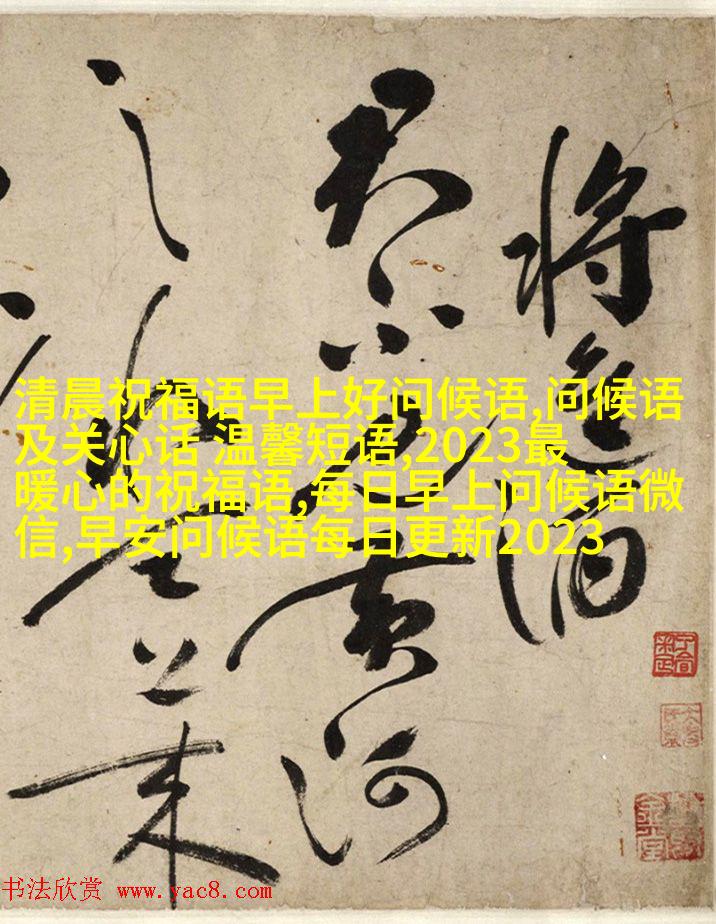 將進酒
君不見黃河
之水天上來
清晨祝福语早上好问候语,问候语
及关心话 温馨短语,2023最
暖心的祝福语,每日早上问候语微
信,早安问候语每日更新2023
书法欣赏 www.yac8.com